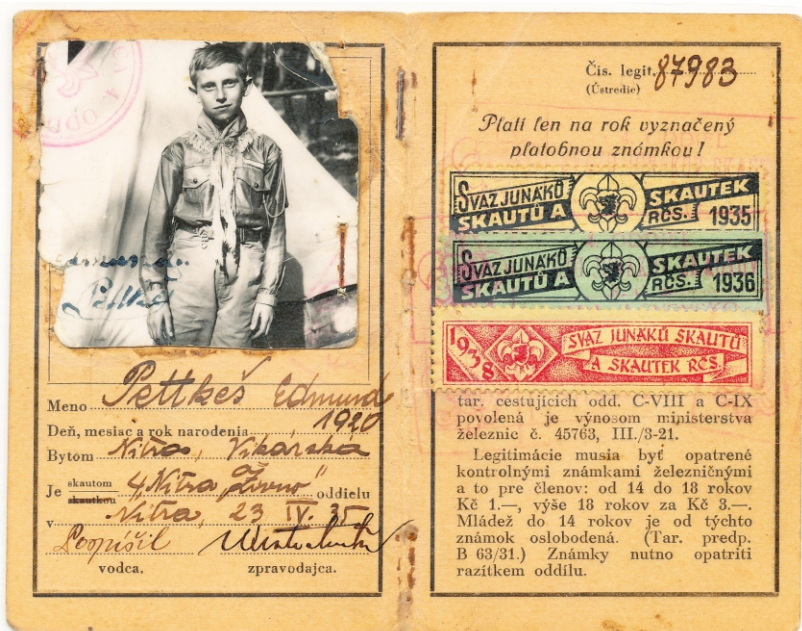 Meno Pettkeš Edmund
Deň, mesiac a rok narodenia 1920
Bytom Nitra, Vikárska
Je skautom skautkou 4 Nitra oddielu
v Nitra, 23 IV. 35
Pospíšil
vodca. zpravodajca.
Čís. legit. 87983
(Ústredie)
Platí len na rok vyznačený
platobnou známkou!
SVAZ JUNÁKŮ SKAUTŮ A SKAUTEK RČS. 1935
SVAZ JUNÁKŮ SKAUTŮ A SKAUTEK RČS. 1936
1938 SVAZ JUNÁKŮ SKAUTŮ
A SKAUTEK RČS.
tar. cestujících odd. C-VIII a C-IX
povolená je výnosom ministerstva
železnic č. 45763, III./3-21.
Legitimácie musia byť opatrené
kontrolnými známkami železničnými
a to pre členov: od 14 do 18 rokov
Kč 1.—, výše 18 rokov za Kč 3.—.
Mládež do 14 rokov je od týchto
známok oslobodená. (Tar. predp.
B 63/31.) Známky nutno opatriti
razítkem oddílu.